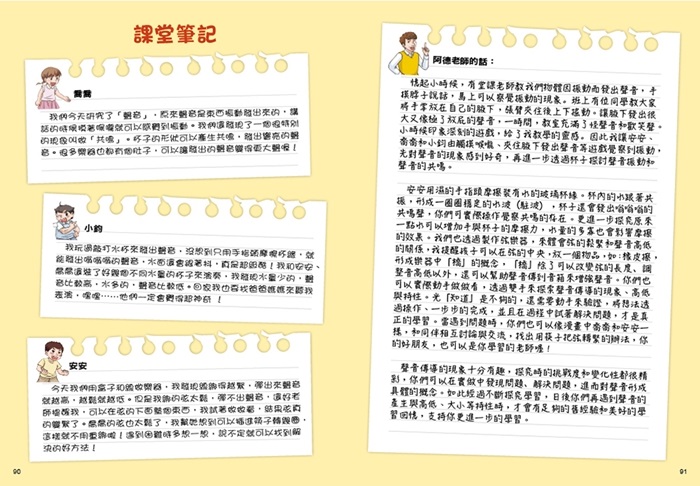 課堂筆記
鴦鴦
我們今天研究了「聲音」，原來聲音是東西振動發出來的，講
話的時候摸著喉嚨就可以感覺到振動。我們還發現了一個很特別
的現象叫做「共鳴」。杯子的形狀可以產生共鳴，發出響亮的聲
音。很多樂器也都有個肚子，可以讓發出的聲音變得更大聲喔！
小鈞
我玩過敲打水杯來發出聲音，沒想到只用手指頭摩擦杯緣，就
能發出嗡嗡嗡的聲音，水面還會起漣漪，真是超酷！我和安安、
還做了好幾個不同水量的杯子來演奏，我發現水量少的，聲
音比較高，水多的，聲音比較低。回家我也要找爸爸媽媽來聽我
表演，嘿嘿……他們一定會覺得超神奇！
安安
今天我們用盒子和 做樂器，我發現 得越緊，彈出來聲音
就越高，越鬆就越低。但是我夠的弦太鬆，彈不出聲音，還好老
師提醒我，可以在弦的下面墊個東西，我試著 ，結果弦真
的變緊了。 的弦也太鬆了，我幫她想到可以 筷子轉幾圈，
這樣就不用重夠啦！遇到困難時多想一想，說不定就可以找到解
決的好方法！
90
阿德老師的話：
憶起小時候，有堂課老師教我們物體因振動而發出聲音，手
摸脖子說話，馬上可以察覺振動的現象。班上有位同學教大家
將手掌放在自己的腋下，張臂夾住後上下振動。讓腋下發出很
大又像極了放屁的聲音，一時間，教室充滿了怪聲音和歡笑聲。
小時候印象深刻的遊戲，給了我教學的靈感。因此我讓安安、
和小鈞由觸摸喉嚨、夾住腋下發出聲音等遊戲覺察到振動，
先對聲音的現象感到好奇，再進一步透過杯子探討聲音振動和
聲音的共鳴。
安安用濕的手指頭摩擦裝有水的玻璃杯緣。杯內的水跟著共
振，形成一圈圈穩定的水波（駐波），杯子還會發出嗡嗡嗡的
共鳴聲，你們可實際操作覺察共鳴的存在。更進一步探究原來
一點水可以增加手與杯子的摩擦力，水量的多寡也會影響摩擦
的效果。我們也透過製作弦樂器，來體會弦的鬆緊和聲音高低
的關係，我提醒孩子可以在弦的中央，放一個物品，如：橡皮擦，
形成弦樂器中「橋」的概念，「橋」除了可以改變弦的長度、調
整聲音高低以外，還可以幫助聲音傳到音箱來增強聲音。你們也
可以實際動手做做看，透過雙手來探索聲音傳導的現象、高低
與特性。光【知道】是不夠的，還需要動手來驗證，將想法透
過操作、一步步的完成，並且在過程中試著解決問題，才是真
正的學習。當遇到問題時，你們也可以像漫畫中 和安安一
樣，和同伴相互討論與交流，找出用筷子把弦轉緊的辦法，你
的好朋友，也可以是你學習的老師喔！
聲音傳導的現象十分有趣，探究時的挑戰度和變化性都很精
彩，你們可以在實做中發現問題、解決問題，進而對聲音形成
具體的概念。如此經過不斷探究學習，日後你們再遇到聲音的
產生與高低、大小等特性時，才會有足夠的舊經驗和美好的學
習回憶，支持你更進一步的學習。
91